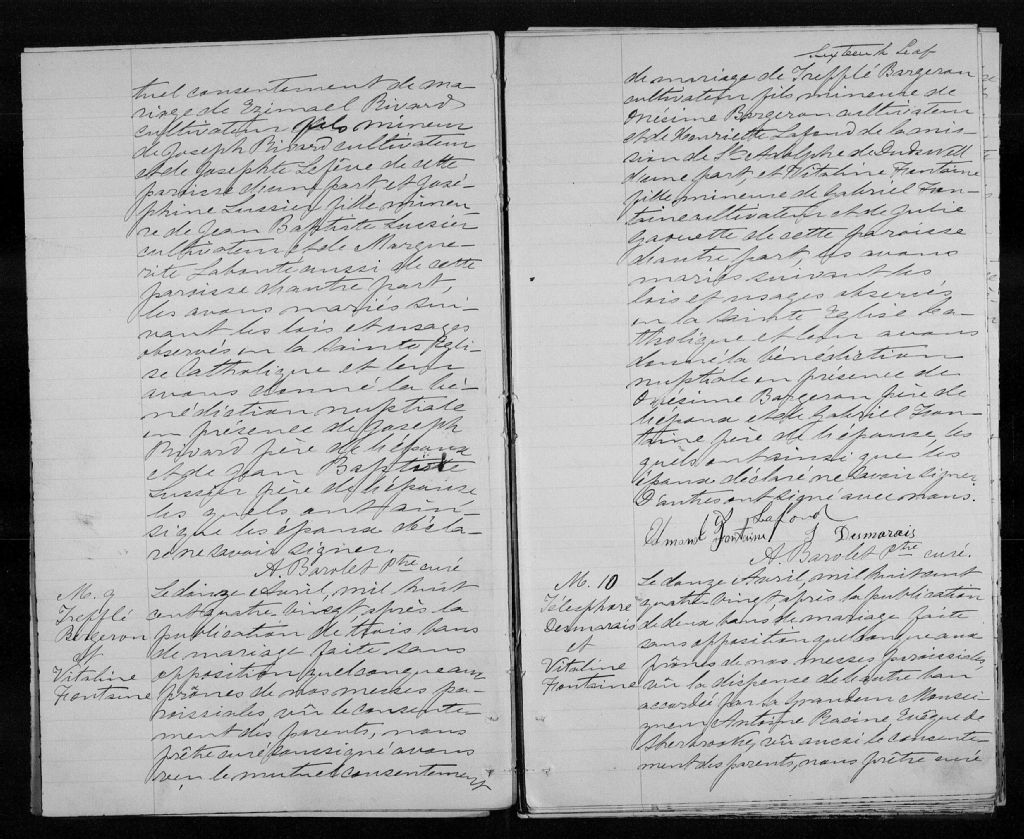 tuel consentement de ma-
riage de Ezimael Rivard
cultivateur fils mineur
de Joseph Rivard cultivateur
et de Josephte Lefêve de cette
paroisse d'une part et José-
phine Lussier fille mineu-
re de Jean Baptiste Lussier
cultivateur et de Margue-
rite Labonté aussi de cette
paroisse d'autre part,
les avons mariés sui-
vant les lois et usages
observés en la Sainte Egli-
se Catholique et leur
avons donné la bé-
nédiction nuptiale
en présence de Joseph
Rivard père de l'époux
et de Jean Baptiste
Lussier père de l'épouse
les quels ont ain-
si que les époux décla-
ré ne savoir signer.
A. Barolet Ptre curé
M. 9
Trefflé
Bergeron
et
Vitaline
Fontaine
Le douze Avril, mil huit
cent quatre-vingt après la
publication de trois bans
de mariage faite sans
opposition quelconque aux
prônes de nos messes pa-
roissiales, vû le consente-
ment des parents, nous
prêtre curé soussigné avons
reçu le mutuel consentement
Sixteenth Leaf
de mariage de Trefflé Bergeron
cultivateur fils mineure de
Onesime Bergeron cultivateur
et de Henriette Lafond de la mis-
sion de St Adolphe de Dudswell
d'une part, et Vitaline Fontaine
fille mineure de Gabriel Fon-
taine cultivateur et de Julie
Gaouette de cette paroisse
d'autre part, les avons
mariés suivant les
lois et usages observés
en la Sainte Eglise Ca-
tholique et leur avons
donné la bénédiction
nuptiale en présence de
Onésime Bergeron père de
l'époux et de Gabriel Fon-
taine père de l'épouse, les
quels ont ainsi que les
époux déclaré ne savoir signer.
D'autres ont signé avec nous.
Lafond
Fontaine J Desmarais
A. Barolet Ptre curé.
M. 10
Télesphore
Desmarais
et
Vitaline
Fontaine
Le douze Avril, mil huit cent
quatre-vingt, après la publication
de deux bans de mariage faite
sans opposition quelconque aux
prônes de nos messes paroissiales,
vû la dispense de l'autre ban
accordée par Sa Grandeur Monsei-
gneur Antoine Racine Evêque de
Sherbrooke, vû aussi le consente-
ment des parents, nous prêtre curé